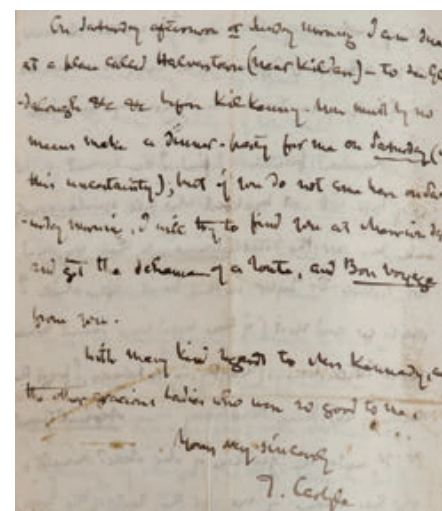 On Saturday afternoon or Sunday morning I am due
at a place called Halverstown (near Kildare) – to see Glen-
-dalough &c &c before Kilkenny. You must by no
means make a dinner-party for me on Saturday (
this uncertainty), but if you do not come here on Sat-
-urday morning, I will try to find you at
and get the schema of a route, and Bon voyage
from you.
With many kind regards to Mrs Kennedy, a
the other gracious ladies who were so good to me,
Yours very sincerely
T. Carlyle